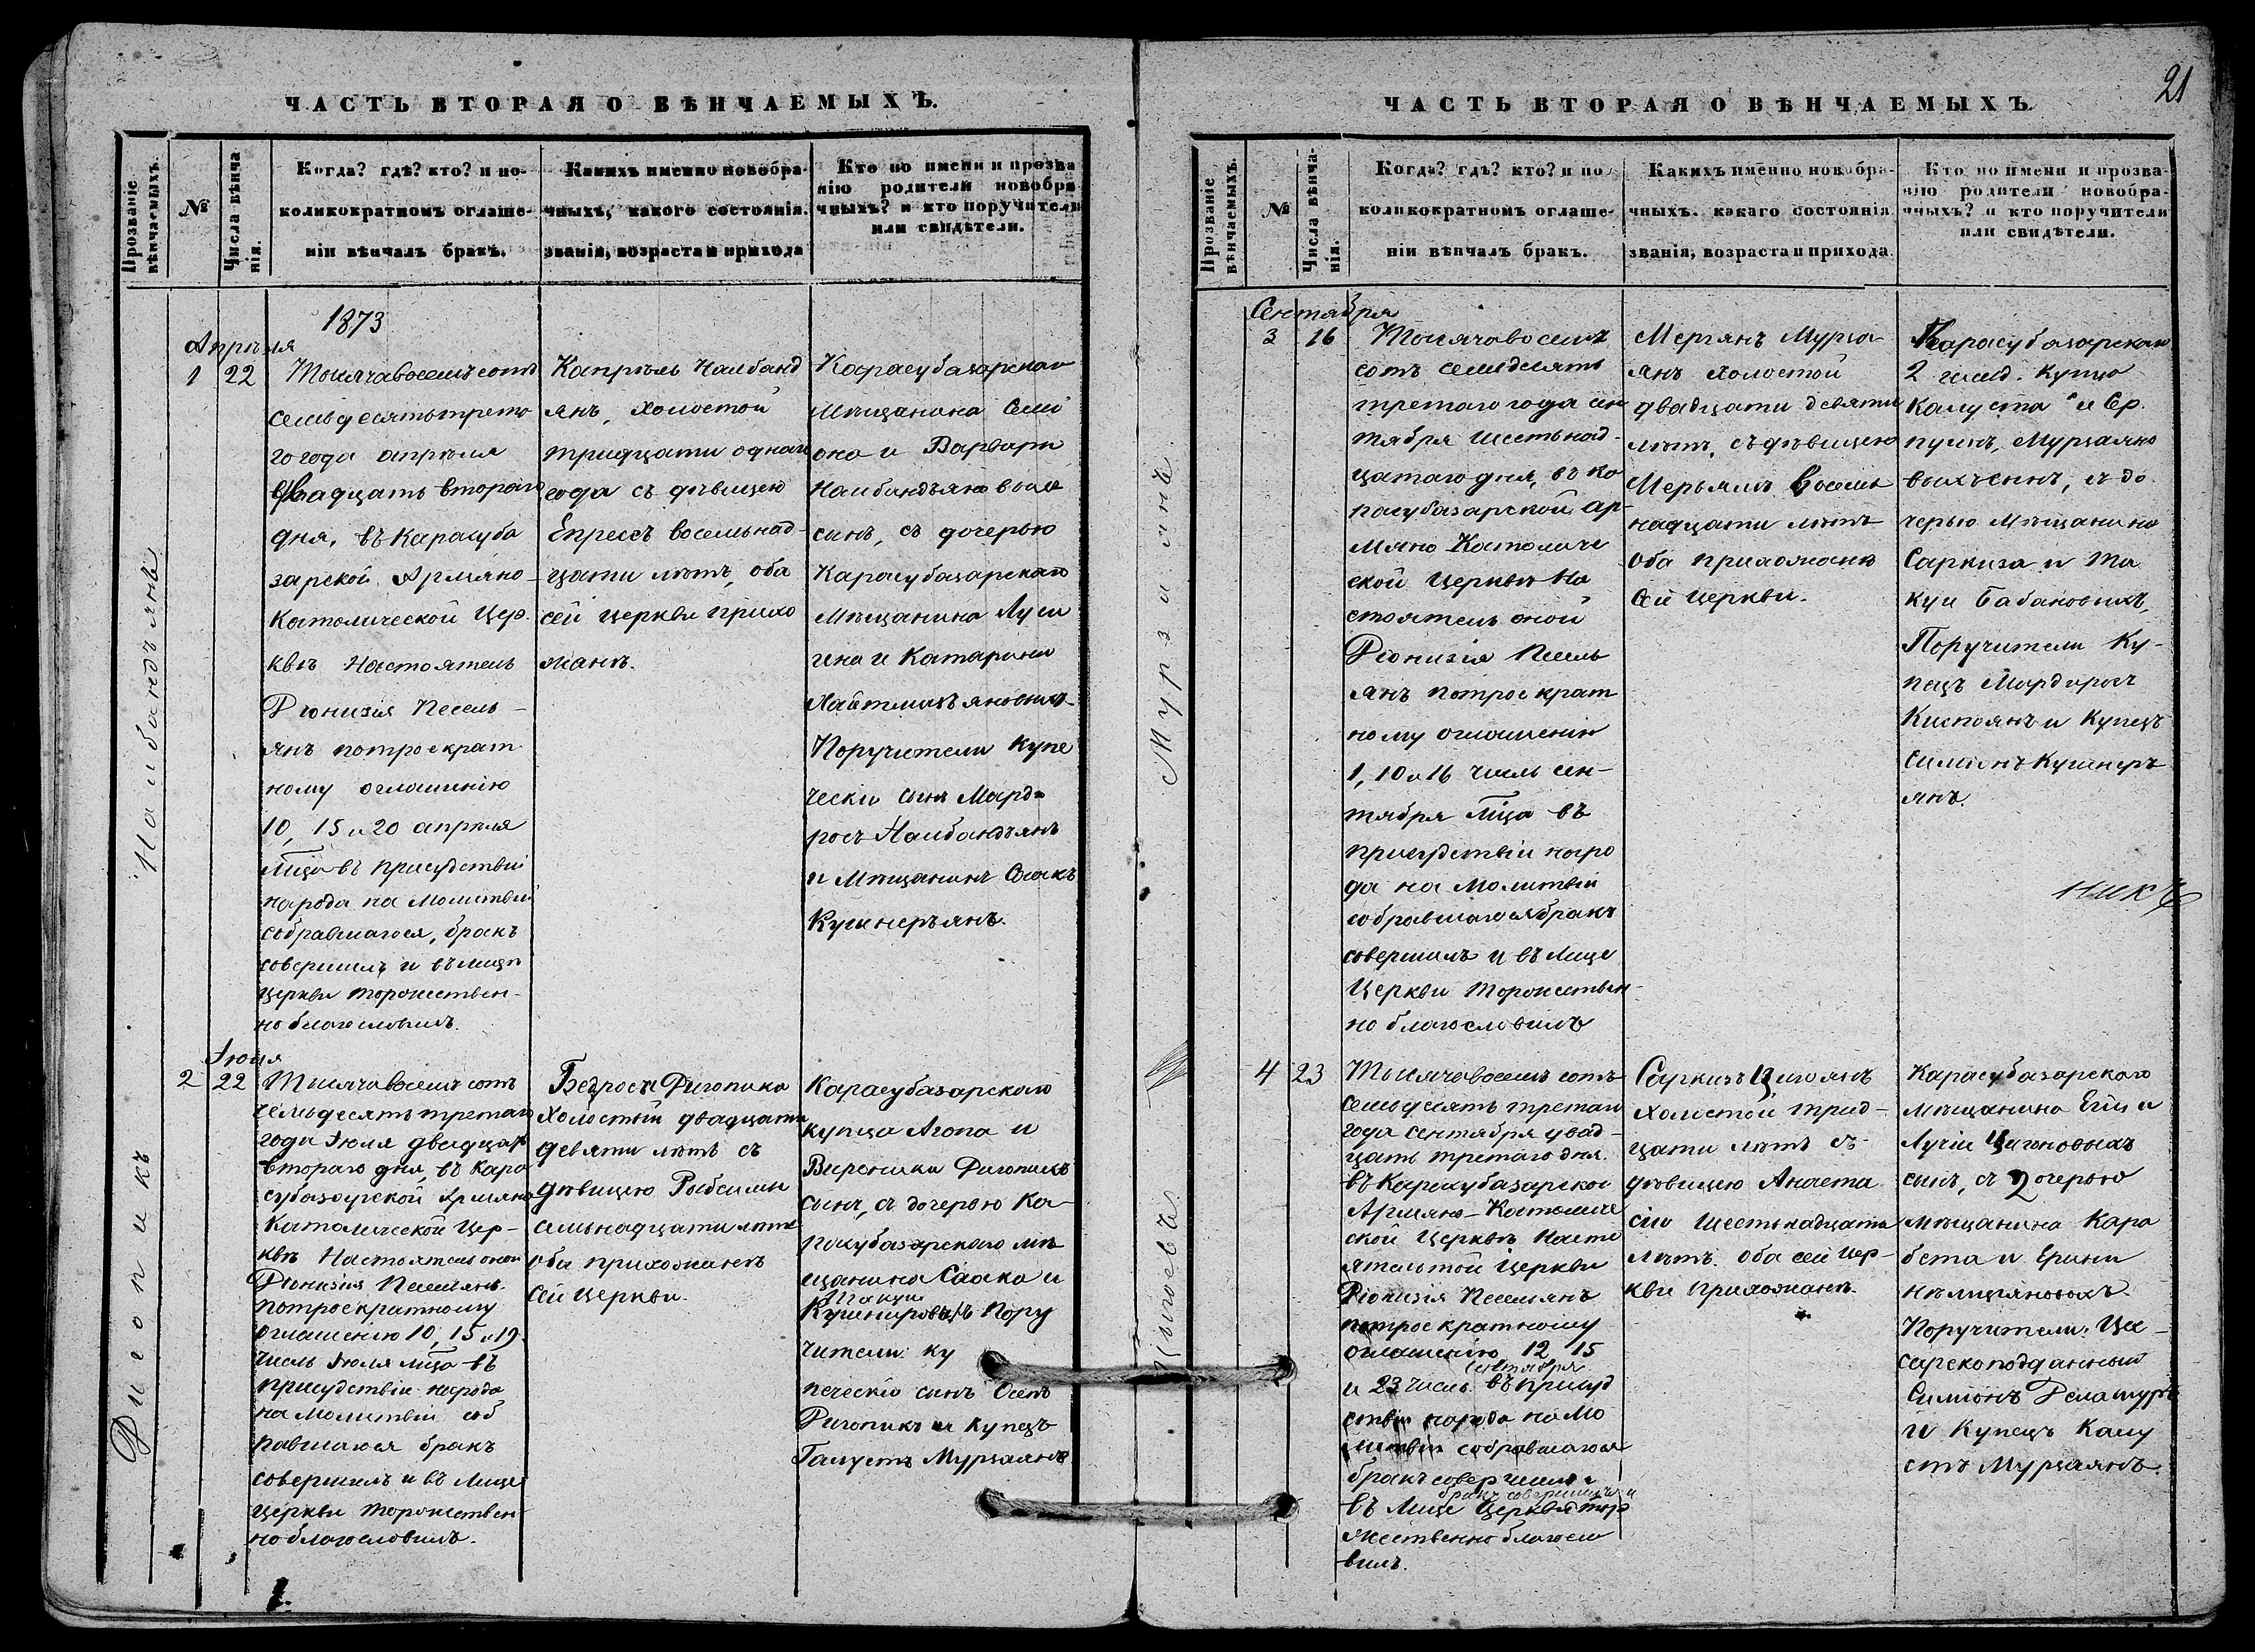 ЧАСТЬ ВТОРАЯ О ВѢНЧАЕМЫХЪ.
Прозваніе вѣнчаемыхъ.
№
Числа вѣнчанія.
Когда? гдѣ? кто? и по-
коликократномъ оглаше-
ніи вѣнчалъ бракъ.
Какихъ именно новобра-
чныхъ, какого состоянія.
званія, возраста и прихода
Кто по имени и прозва
нію родители новобра
чныхъ? и кто поручители
или свидѣтели.
1873
Налбандъянъ
Апрѣля
1 22
Тысячавосемьсотъ
семьдесятътрета
го года апрѣля
двадцать второго
дня, въ Карасуба
зарской Армяно-
Католической Цер.
квѣ Настоятель
Діонизія Песель-
янъ потроекрат
ному оглашенію
10, 15 и 20 апрѣля
мца въ присудствіи
народа на молитвы
собравшагося, бракъ
совершилъ и въ лицѣ
церкви торжествен-
но благословилъ.
Капрѣль Налбанд
янъ, холостой
тридцати однаго
года съ дѣвицею
Епресъ восемьнад-
цати лѣтъ, оба
сей церкви прихо
жанѣ.
Карасубазарскаго
мѣщанина Семі
она и Варвары
Налбандъяновыхъ
сынъ, съ дочерью
Карасубазарскаго
мѣщанина Луси
гена и Катарини
Хайтмазъяновыхъ
Поручители купе
чески сынъ Марди
росъ Налбандъянъ
и мѣщанинъ Саакъ
Кушнеръянъ.
Фигопикъ
Іюля
2 22
Тысячавосемьсотъ
семьдесятъ третаго
года Іюля двадцать
втораго дня, въ Кара
субазарской Армяно
Католической Цер-
квѣ Настоятель оной
Діонизія Песельянъ
потроекратному
оглашенію 10, 15 и 19
числъ Іюля мца въ
присудствіи народа
на молитвы соб
равшагося бракъ
совершилъ и въ лице
церкви торжествен-
но благословилъ.
Бедросъ Фигопика
холостый двадцати
девяти лѣтъ съ
дѣвицею Рыбсиміи
семьнадцати лѣтъ
оба прихожанѣ
сей церкви.
Карасубазарскаго
купца Агопа и
Вироники Фигопикъ
сынъ, съ дочерью Ка-
расубазарскаго мѣ
щанина Саака и
Такуи
Кушнировыхъ Пору
чители: ку
печескій сынъ Осепъ
Фигопикъ и купецъ
Галустъ Мурзаянъ
21
ЧАСТЬ ВТОРАЯ О ВѢНЧАЕМЫХЪ.
Прозваніе вѣнчаемыхъ.
№
Числа вѣнчанія.
Когда? гдѣ? кто? и по
коликократномъ оглаше-
ніи вѣнчалъ бракъ.
Какихъ именно новобра-
чныхъ. какаго состоянія
званія, возраста и прихода.
Кто по имени и прозва-
нію родители новобра-
чныхъ? и кто поручители
или свидѣтели.
Мурзаянъ
Сентября
3 16
Тысячавосемь
сотъ семьдесятъ
третаго года сен
тября шестьнад-
цатаго дня, въ Ка
расубазарской Ар-
мяно Католиче
ской Церквѣ На
стоятель оной
Діонизія Песель
янъ потроекрат
ному оглашенію
1, 10 и 16 числъ сен-
тября мца въ
присудствіи наро
да на молитвы
собравшагося бракъ
совершилъ и въ лице
Церкви торжествен-
но благословилъ
Мергянъ Мурза-
янъ холостой
двадцати девяти
лѣтъ, съ дѣвицею
Мерьямъ восемь
надцати лѣтъ
оба прихожанѣ
сей церкви.
Карасубазарскаго
2 гилд. купца
Калуста и Ер.
пушъ, Мурзаяно
выхъ сынъ, съ до
черью мѣщанина
Саркиза и Та
куи Бабановыхъ,
Поручители Ку-
пецъ Мардиросъ
Киспоянъ и Купецъ
Симіонъ Кушнеръ
янъ.
никъ
Цыгоевъ
4 23
Тысячавосемьсотъ
семьдесятъ третаго
года сентября двад-
цать третаго дня.
въ Карасубазарской
Армяно-Католиче
ской Церквѣ Насто
ятель той Церкви
Діонизія Песельянъ
потроекратному
оглашенію 12 15
сентября
и 23 числъ въ присуд
ствіи народа на мо
литвы собравшагося
бракъ совершилъ и
бракъ совершилъ и
въ лице Церквя тор
жественно благосло
вилъ.
Саркизъ Цигоянъ
холостой трид-
цати лѣтъ съ
дѣвицею Анаста
сію шестьнадцати
лѣтъ. оба сей цер-
кви прихожанѣ.
Карасубазарскаго
мѣщанина Егіи и
Лучіи Цигоновыхъ
сынъ, съ дочерью
мѣщанина Кара
бета и Ерини
Поручители: Це-
сарскоподданный
Симіонъ Делатуръ
и Купецъ Калу
стъ Мурзаянъ.